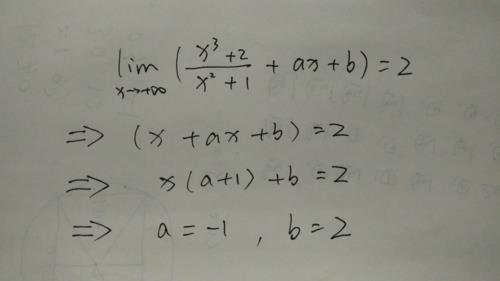 lim x→+∞ ( (x³+2)/(x²+1) + ax + b ) = 2
⇒ (x + ax + b) = 2
⇒ x(a+1) + b = 2
⇒ a = -1 , b = 2